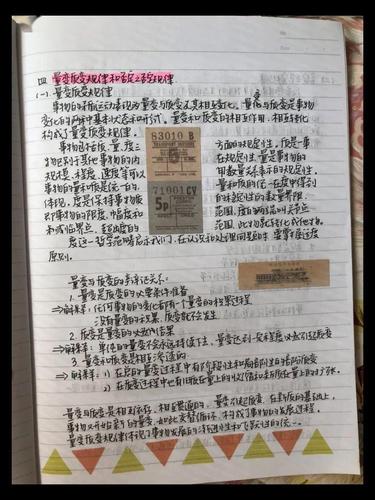 四 量变质变规律和否定之否定规律
(一) 量变质变规律
事物的变化的两种基本状态和形式，量变和质变的相互作用、相互转化
构成了量变质变规律。
事物包括质、量、度三
方面的规定性。质是一事
物区别于其他事物的内
在规定性。量是事物的
规模、程度、速度等可以
用数量关系表示的规定性。
事物的量和质是统一的，
量和质的统一在度中得到
体现。度是保持事物质
的稳定性的数量界限，
即事物的限度、幅度和
范围，度的两端叫关节点
和或临界点，超出度的
范围，此物就转化成他物。
83010 B
71001 CV
5p
度这一哲学范畴启示我们，在认识和处理问题时要掌握适度
原则。
量变与质变的辩证关系：
1. 量变是质变的必要准备
⇒解释：任何事物的变化都有一个量变的积累过程
没有量变的积累，质变就不会发生
2. 质变是量变的必然结果
⇒解释：单纯的量变不会永远持续下去，量变达到一定程度必然引起质变
3. 量变和质变是相互渗透的
⇒解释：1) 在总的量变过程中有阶段性和局部性的部分质变
2) 在质变过程中也有旧质在量上的收缩和新质在量上的扩张。
量变与质变是相互依存、相互贯通的，量变引起质变，在新质的基础上，
事物又开始新的量变，如此交替循环，构成了事物的发展过程。
量变质变规律体现了事物发展的渐进性和飞跃性的统一。